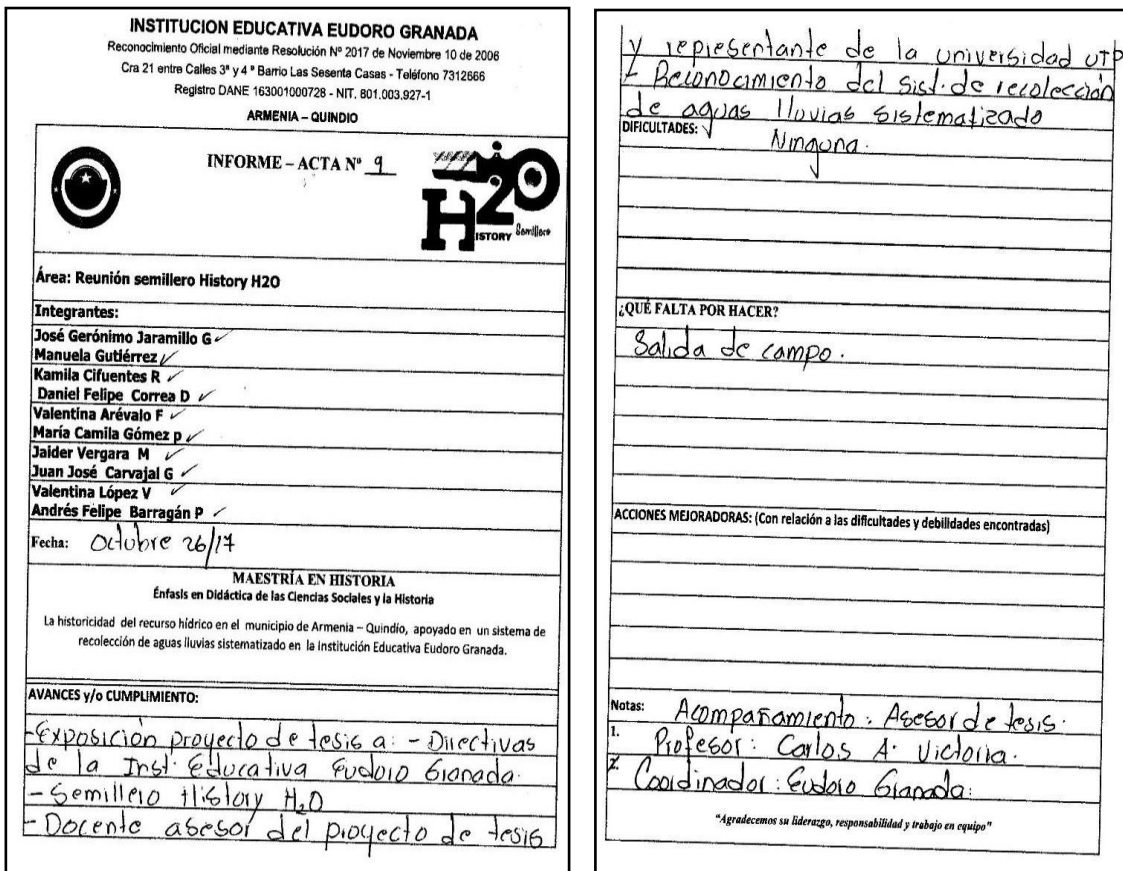 INSTITUCION EDUCATIVA EUDORO GRANADA
Reconocimiento Oficial mediante Resolución Nº 2017 de Noviembre 10 de 2006
Cra 21 entre Calles 3ª y 4 ª Barrio Las Sesenta Casas - Teléfono 7312666
Registro DANE 163001000728 - NIT. 801.003.927-1
ARMENIA – QUINDIO
INFORME – ACTA Nº 9
H20
ISTORY Semillero
Área: Reunión semillero History H2O
Integrantes:
José Gerónimo Jaramillo G ✓
Manuela Gutiérrez ✓
Kamila Cifuentes R ✓
Daniel Felipe Correa D ✓
Valentina Arévalo F ✓
María Camila Gómez p ✓
Jaider Vergara M ✓
Juan José Carvajal G ✓
Valentina López V ✓
Andrés Felipe Barragán P ✓
Fecha: Octubre 26/17
MAESTRÍA EN HISTORIA
Énfasis en Didáctica de las Ciencias Sociales y la Historia
La historicidad del recurso hídrico en el municipio de Armenia – Quindío, apoyado en un sistema de
recolección de aguas lluvias sistematizado en la Institución Educativa Eudoro Granada.
AVANCES y/o CUMPLIMIENTO:
-Exposición proyecto de tesis a: - Directivas
de la Inst. Educativa Eudoro Granada.
- Semillero History H2O
- Docente asesor del proyecto de tesis
y representante de la universidad UTP
- Reconocimiento del Sist. de recolección
de aguas lluvias sistematizado
DIFICULTADES:
Ninguna.
¿QUÉ FALTA POR HACER?
Salida de campo.
ACCIONES MEJORADORAS: (Con relación a las dificultades y debilidades encontradas)
Notas: Acompañamiento: Asesor de tesis.
1. Profesor: Carlos A. Victoria.
2. Coordinador: Eudoro Granada.
"Agradecemos su liderazgo, responsabilidad y trabajo en equipo"